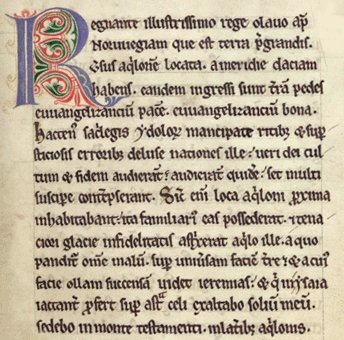 Regnante illustrissimo rege olauo ap̄
Norwegiam que est terra p̄grandis.
v̄sus aq̇lonē locata. a meridie daciam
habens. eandem ingressi sunt t̄rā pedes
euuangelizanciū pacē. euuangelizanciū bona.
Hacten᷒ sac̄legis ⁊ dolor᷒ mancipate ritib᷒ ⁊ sup̄
sticiosis erroribȝ deluse nationes ille. ueri dei cul
tum ⁊ fidem audierāt. audierāt quidē. set multi
suscipe contēpserant. Sic̄ eni᷒ loca aq̇loni p̄xima
inhabitabant. ita familiari᷒ eas possederat. ⁊ tena
ciori glacie infidelitatis astrīxerat aq̇lo ille. a quo
panditr᷒ om̄e malū. sup̄ uniu᷒sam faciē t̄re ⁊ a cui᷒
facie ollam succensā uidet ieremias. ⁊ q̇ in ysaia
iactantr᷒ p̄fert sup̄ astᵃ celi exaltabo soliū meū.
sedebo in monte testamenti. in lat̄ibȝ aq̇lonis.